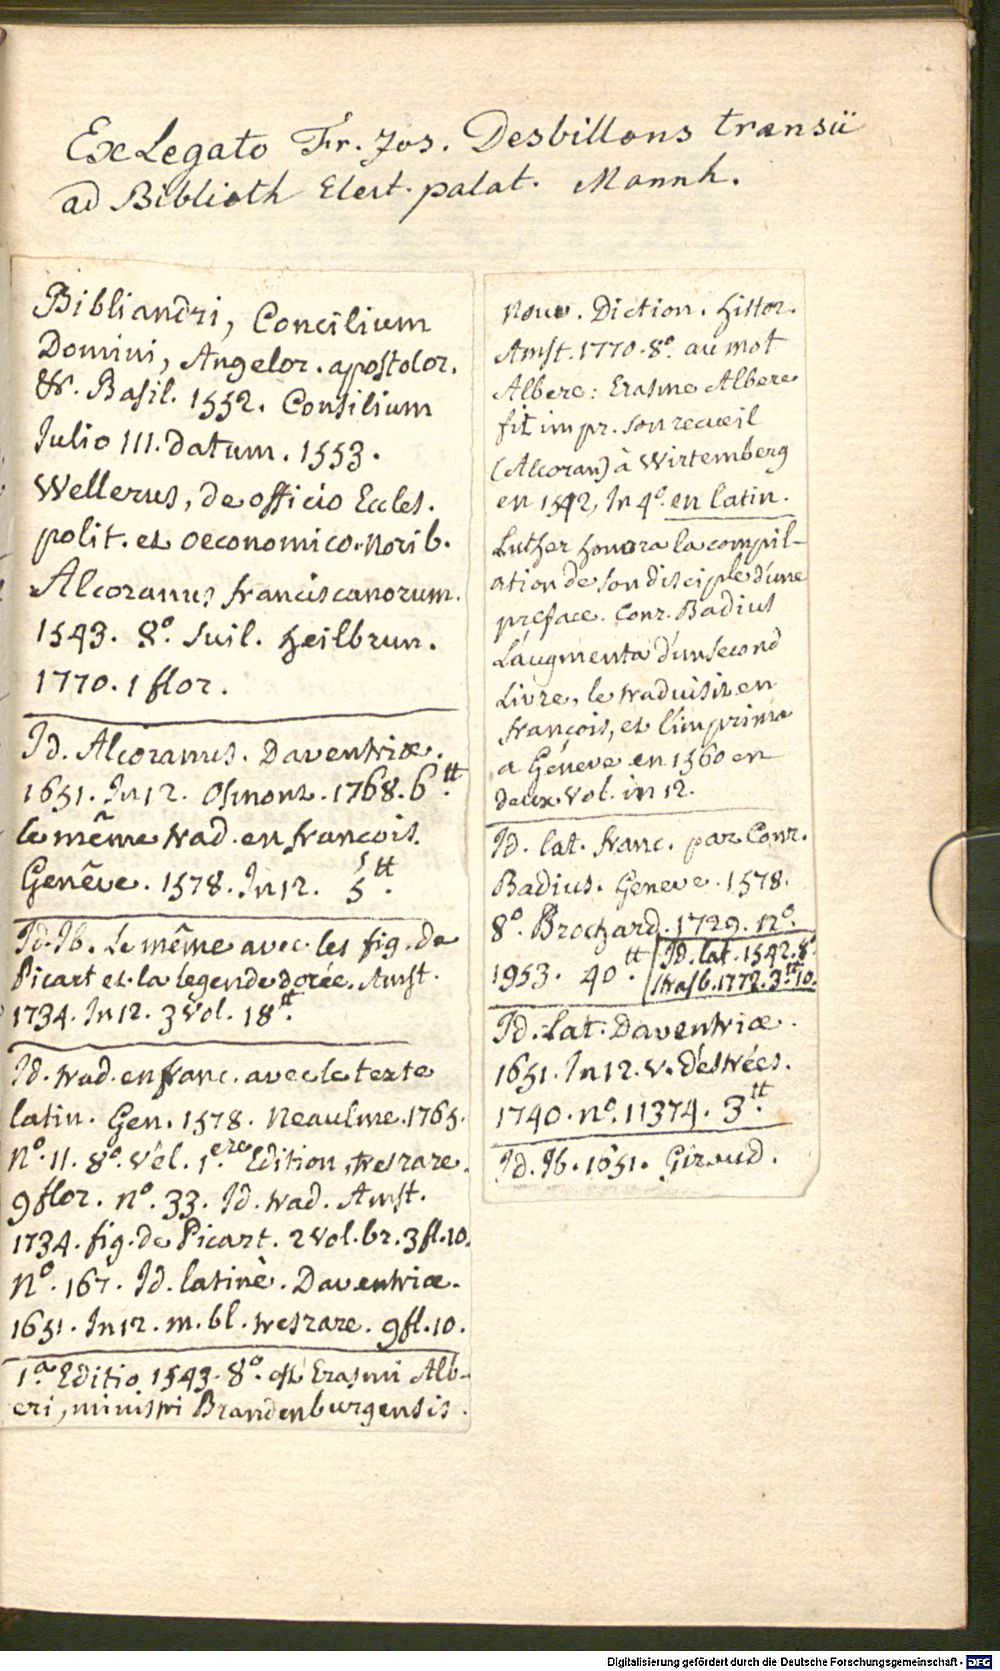 Ex Legato Fr. Jos. Desbillons transii
ad Biblioth Elect. palat. Mannh.
Bibliandri, Concilium
Domini, Angelor. apostolor.
&c. Basil. 1552. Consilium
Julio III. datum. 1553.
Wellerus, de officio Eccles.
polit. et oeconomico. Norib.
Alcoranus franciscanorum.
1543. 8º. Suil. Heilbrun.
1770. 1 flor.
Id. Alcoranus. Daventriæ.
1651. In 12. Osmont. 1768. 6 ₶.
le même trad. en françois.
Genêve. 1578. In 12. 5 ₶.
Id. Ib. Le même avec les fig. de
Picart et la légende dorée. Amst.
1734. In 12. 3 vol. 18 ₶.
Id. trad. en franc. avec le texte
latin. Gen. 1578. Neaulme. 1765.
Nº. 11. 8º. vél. 1.ere Edition, tres rare.
9 flor. nº. 33. Id. trad. Amst.
1734. fig. de Picart. 2 vol. br. 3 fl. 10.
Nº. 167. Id. latinè. Daventriæ.
1651. In 12. m. bl. tres rare. 9 fl. 10.
1.a Editio 1543. 8º. est Erasmi Alb-
eri, ministri Brandenburgensis.
Nouv. Diction. histor.
Amst. 1770. 8º. au mot
Albere: Erasme Albere
fit impr. son recueil
(Alcoran) à Wirtemberg
en 1542, In 4º. en latin.
Luther honora la compil-
ation de son disciple d'une
preface. Conr. Badius
L'augmenta d'un second
Livre, le traduisit en
françois, et l'imprima
a Géneve en 1560 en
deux vol. in 12.
Id. lat. franc. par Conr.
Badius. Geneve. 1578.
8º. Brochard. 1729. nº.
1953. 40 ₶.
Id. lat. 1542. 8º.
Strasb. 1772. 3 ₶. 10.
Id. Lat. Daventriæ.
1651. In 12. v. d'estrées.
1740. nº. 11374. 3 ₶.
Id. Ib. 1651. Giraud.
Digitalisierung gefördert durch die Deutsche Forschungsgemeinschaft - DFG